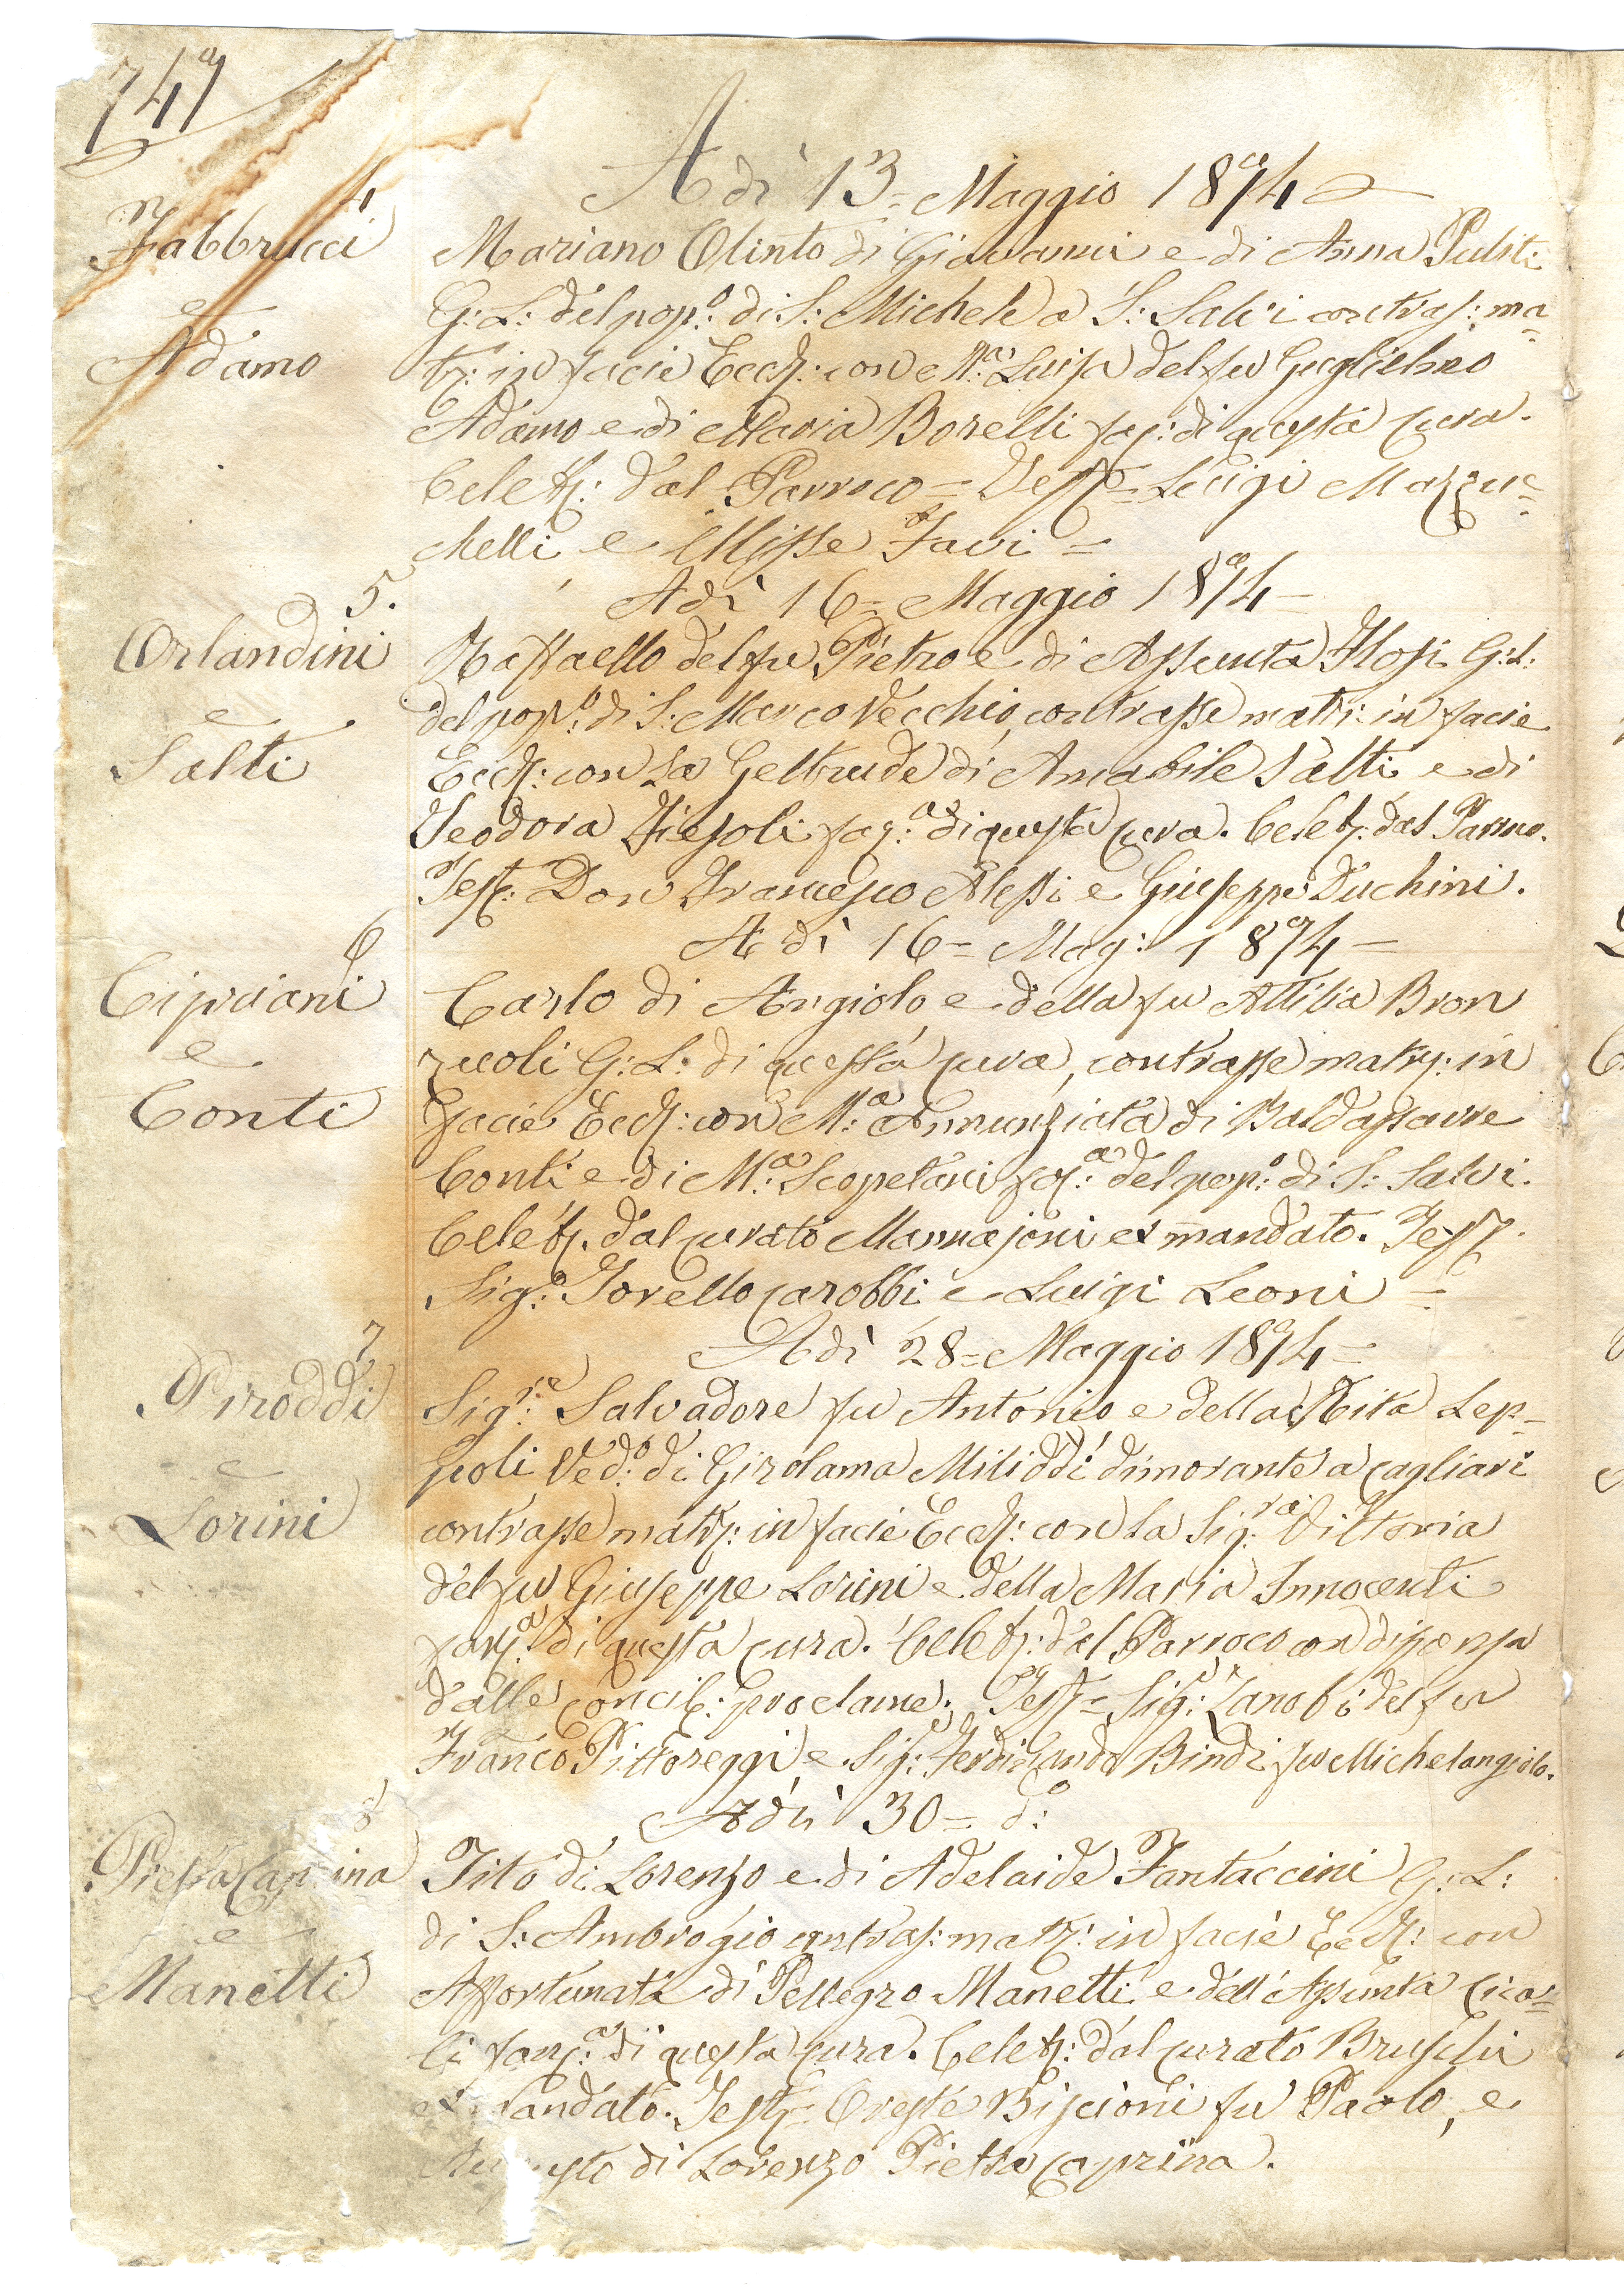 749
Adì 13= Maggio 1894
4
Fabbrucci
e
Adamo
Mariano Olinto di Giovanni e di Anna Puliti
G: L: del pop.o di S: Michele a S: Salvi contras: ma=
tr: in facie Eccl: con M.a Luisa del fu Guglielmo
Adamo e di Maria Borelli fa: di questa cura.
Celebr: dal Parroco = Test = Luigi Mazzuc=
chelli e Ulisse Favi =
5.
Adì 16= Maggio 1894=
Orlandini
e
Salti
Raffaello del fu Pietro e di Assunta Flosi G: L:
del pop.o di S: Marco Vecchio, contrasse matr: in facie
Eccl: con la Geltrude di Amabile Salti e di
Teodora Fiesoli fa:a di questa cura. Celebr. dal Parroco.
Test: Don Francesco Alessi e Giuseppe Duchini.
6
Adì 16= Mag: 1894=
Cipriani
e
Conti
Carlo di Angiolo e della fu Attilia Bron
zuoli G: L: di questa cura, contrasse matr: in
facie Eccl: con M.a Annunziata di Baldassarre
Conti e di M.a Scopetani fa:a del pop.o di S: Salvi.
Celebr. dal curato Mannajoni ex mandato. Test
Sig: Torello Carobbi e Luigi Leoni =
7
Adì 28= Maggio 1894=
Piroddi
e
Lorini
Sig.re Salvadore fu Antonio e della Rita Lep=
poli Ved.o di Girolama Miliddi dimorante a Cagliari
contrasse matr: in facie Eccl: con la Sig.ra Vittoria
del fu Giuseppe Lorini e della Maria Innocenti
fan:a di questa cura. Celebr: dal Parroco con dispensa
dalle concil: proclame. Test= Sig: Zanobi del fu
Franco Pittoreggi e Sig: Ferdinando Bindi fu Michelangiolo.
8
Adì 30= d.o
PietraCaprina
e
Manetti
Tito di Lorenzo e di Adelaide Fantaccini G: L:
di S: Ambrogio contras: matr: in facie Eccl: con
Affortunata di Pellegro Manetti e dell'Assunta Cico=
li fan:a di questa cura. Celebr: dal curato Bruschi
mandato. Test= Oreste Biscioni fu Paolo, e
Augusto di Lorenzo Pietra Caprina.